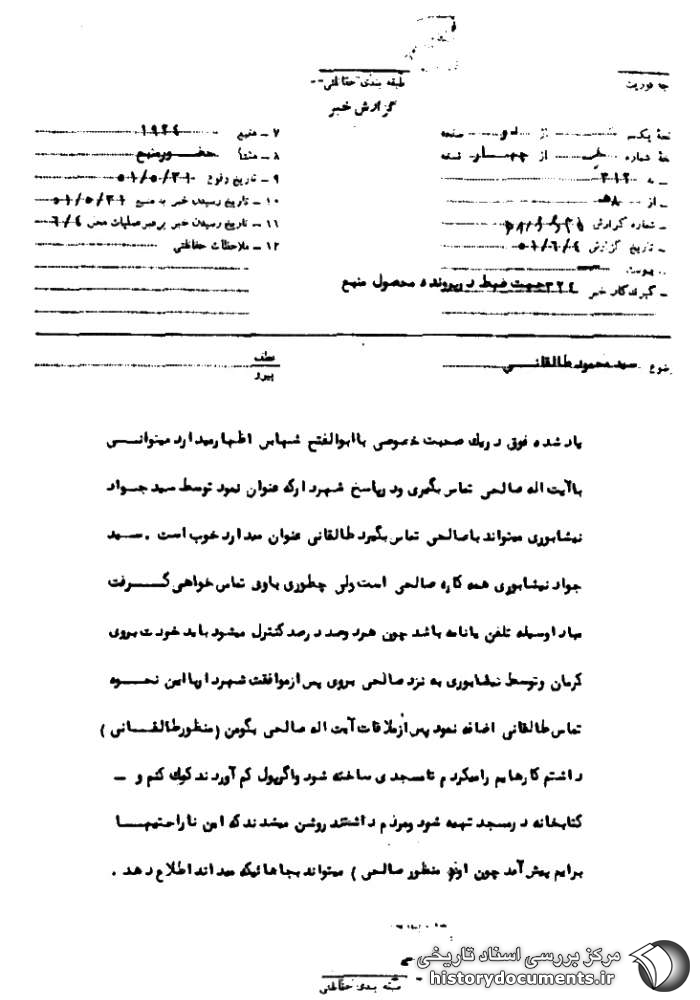 طبقه بندی حفاظتی
گزارش خبر
۷ ـ منبع ۱۹۲۴
۸ ـ منشأ حضور منبع
۹ ـ تاریخ وقوع ۵۱/۵/۳۱
۱۰ ـ تاریخ رسیدن خبر به منبع ۵۱/۵/۳۱
۱۱ ـ تاریخ رسیدن خبر برهبر عملیات محل ۶/۴
۱۲ ـ ملاحظات حفاظتی
از دو صفحه
از چهار نسخه
ـ به ۳۱۲
ـ از ۸ﻫ
ـ شماره گزارش
ـ تاریخ گزارش ۵۱/۶/۴
پیوست
ـ گیرندگان خبر ۳۲۴ جهت ضبط در پرونده محصول منبع
سید محمود طالقانی
عطف
پیرو
یاد شده فوق در یک صحبت خصوصی با ابوالفتح اظهار میدارد میتوانی
با آیت اله صالحی تماس بگیری و در پاسخ شهردار که عنوان نمود توسط سید جواد
نیشابوری میتواند با صالحی تماس بگیرد طالقانی عنوان میدارد خوب است . سید
جواد نیشابوری همه کاره صالحی است ولی چطوری باوی تماس خواهی گرفت
مبادا وسیله تلفن یا نامه باشد چون هر دو صد در صد کنترل میشود باید خودت بروی
کرمان و توسط نیشابوری به نزد صالحی بروی پس از موافقت شهردار با این نحوه
تماس طالقانی اضافه نمود پس از ملاقات آیت اله صالحی بگو من (منظور طالقانی)
داشتم کارهایم را میکردم تا مسجدی ساخته شود و اگر پول کم آوردند کمک کنم و ـ
کتابخانه در مسجد تهیه شود و مردم داشتند روشن میشدند که این ناراحتیها
برایم پیش آمد چون او (منظور صالحی) میتواند بجاهائیکه میداند اطلاع دهد .
طبقه بندی حفاظتی
مرکز بررسی اسناد تاریخی
historydocuments.ir